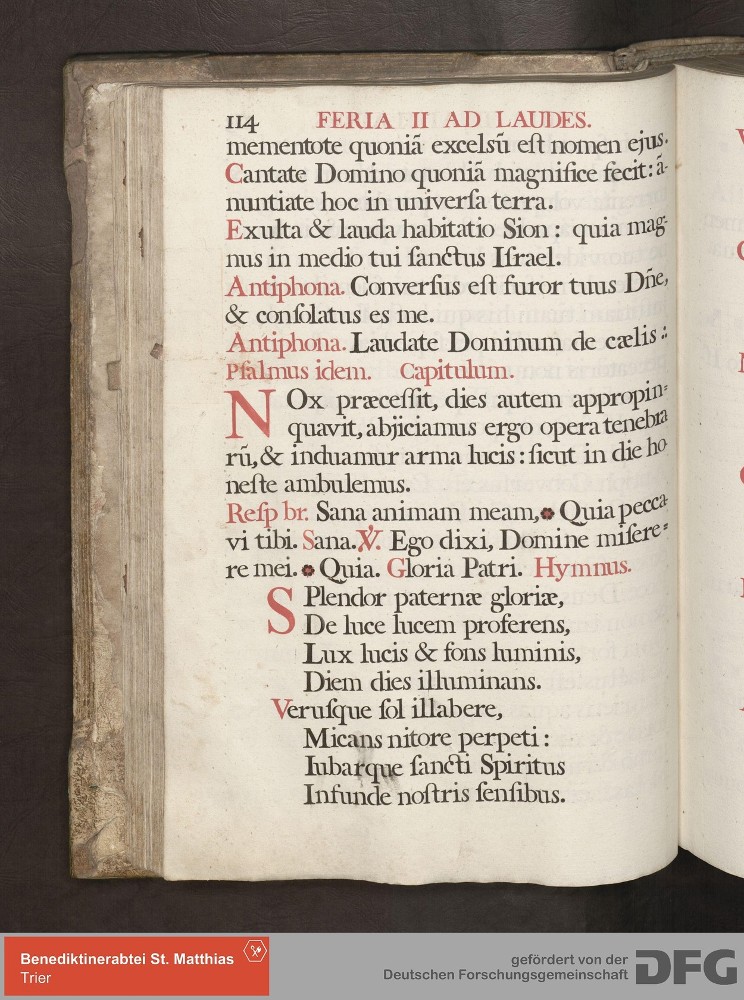 114 FERIA II AD LAUDES.
mementote quoniã excelsũ eſt nomen ejus.
Cantate Domino quoniã magnifice fecit: ã-
nuntiate hoc in univerſa terra.
Exulta & lauda habitatio Sion: quia mag-
nus in medio tui ſanctus Iſrael.
Antiphona. Converſus eſt furor tuus Dñe,
& conſolatus es me.
Antiphona. Laudate Dominum de cælis :·
Pſalmus idem. Capitulum.
NOx præceſſit, dies autem appropin=
quavit, abjiciamus ergo opera tenebra
rũ, & induamur arma lucis: ſicut in die ho
neſte ambulemus.
Reſp br. Sana animam meam, * Quia pecca
vi tibi. Sana. ℣. Ego dixi, Domine miſere=
re mei. * Quia. Gloria Patri. Hymnus.
SPlendor paternæ gloriæ,
De luce lucem proferens,
Lux lucis & fons luminis,
Diem dies illuminans.
Veruſque ſol illabere,
Micans nitore perpeti:
Iubarque ſancti Spiritus
Infunde noſtris ſenſibus.
Benediktinerabtei St. Matthias
Trier
gefördert von der
Deutschen Forschungsgemeinschaft
DFG